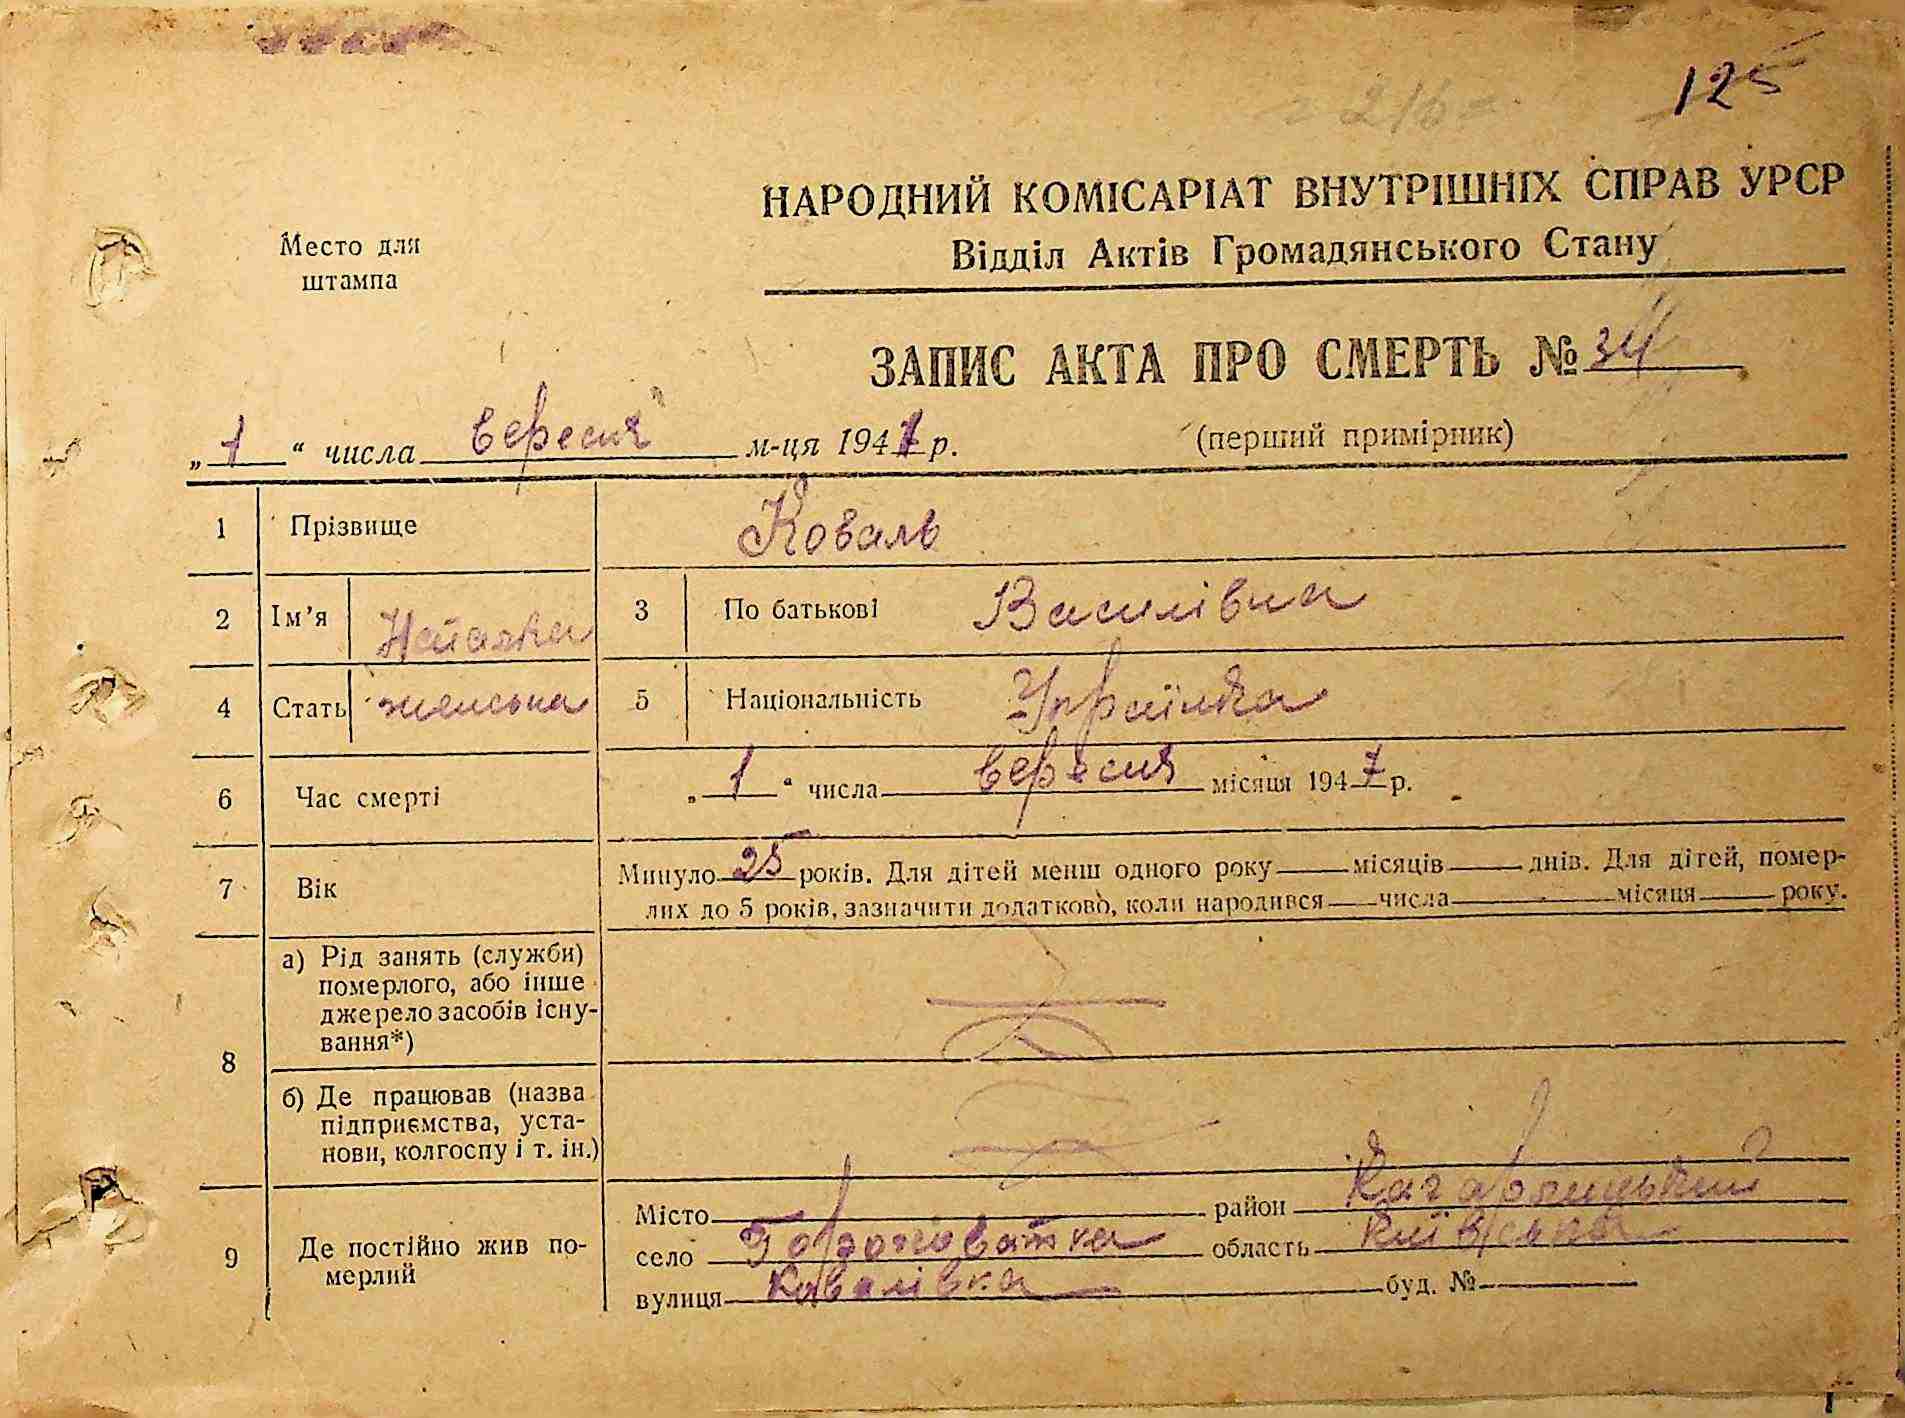 125
216
НАРОДНИЙ КОМІСАРІАТ ВНУТРІШНІХ СПРАВ УРСР
Место для
штампа
Відділ Актів Громадянського Стану
ЗАПИС АКТА ПРО СМЕРТЬ № 34
„ 1 “ числа вересня м-ця 1947 р.
(перший примірник)
1 Прізвище Коваль
2 Ім'я Наталка 3 По батькові Василівна
4 Стать женська 5 Національність Українка
6 Час смерті „ 1 “ числа вересня місяця 1947 р.
7 Вік Минуло 25 років. Для дітей менш одного року місяців днів. Для дітей, помер-
лих до 5 років, зазначити додатково, коли народився числа місяця року.
8 а) Рід занять (служби)
померлого, або інше
джерело засобів існу-
вання*)
б) Де працював (назва
підприємства, уста-
нови, колгоспу і т. ін.)
9 Де постійно жив по-
мерлий
Місто район Кагарлицький
село Горохуватка область Київська
вулиця Ковалівка буд. №